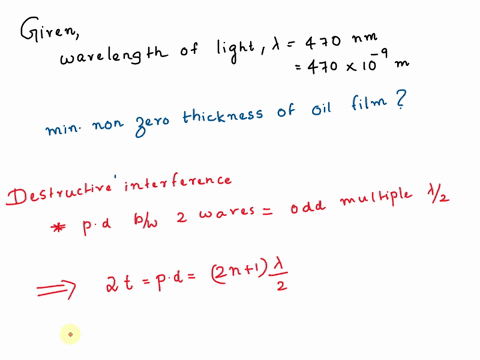 Given,
wavelength of light, λ = 470 nm
= 470 × 10⁻⁹ m
min. non zero thickness of oil film ?
Destructive interference
* p.d b/w 2 waves = odd multiple λ/2
⟹ 2t = p.d = (2n+1) λ/2